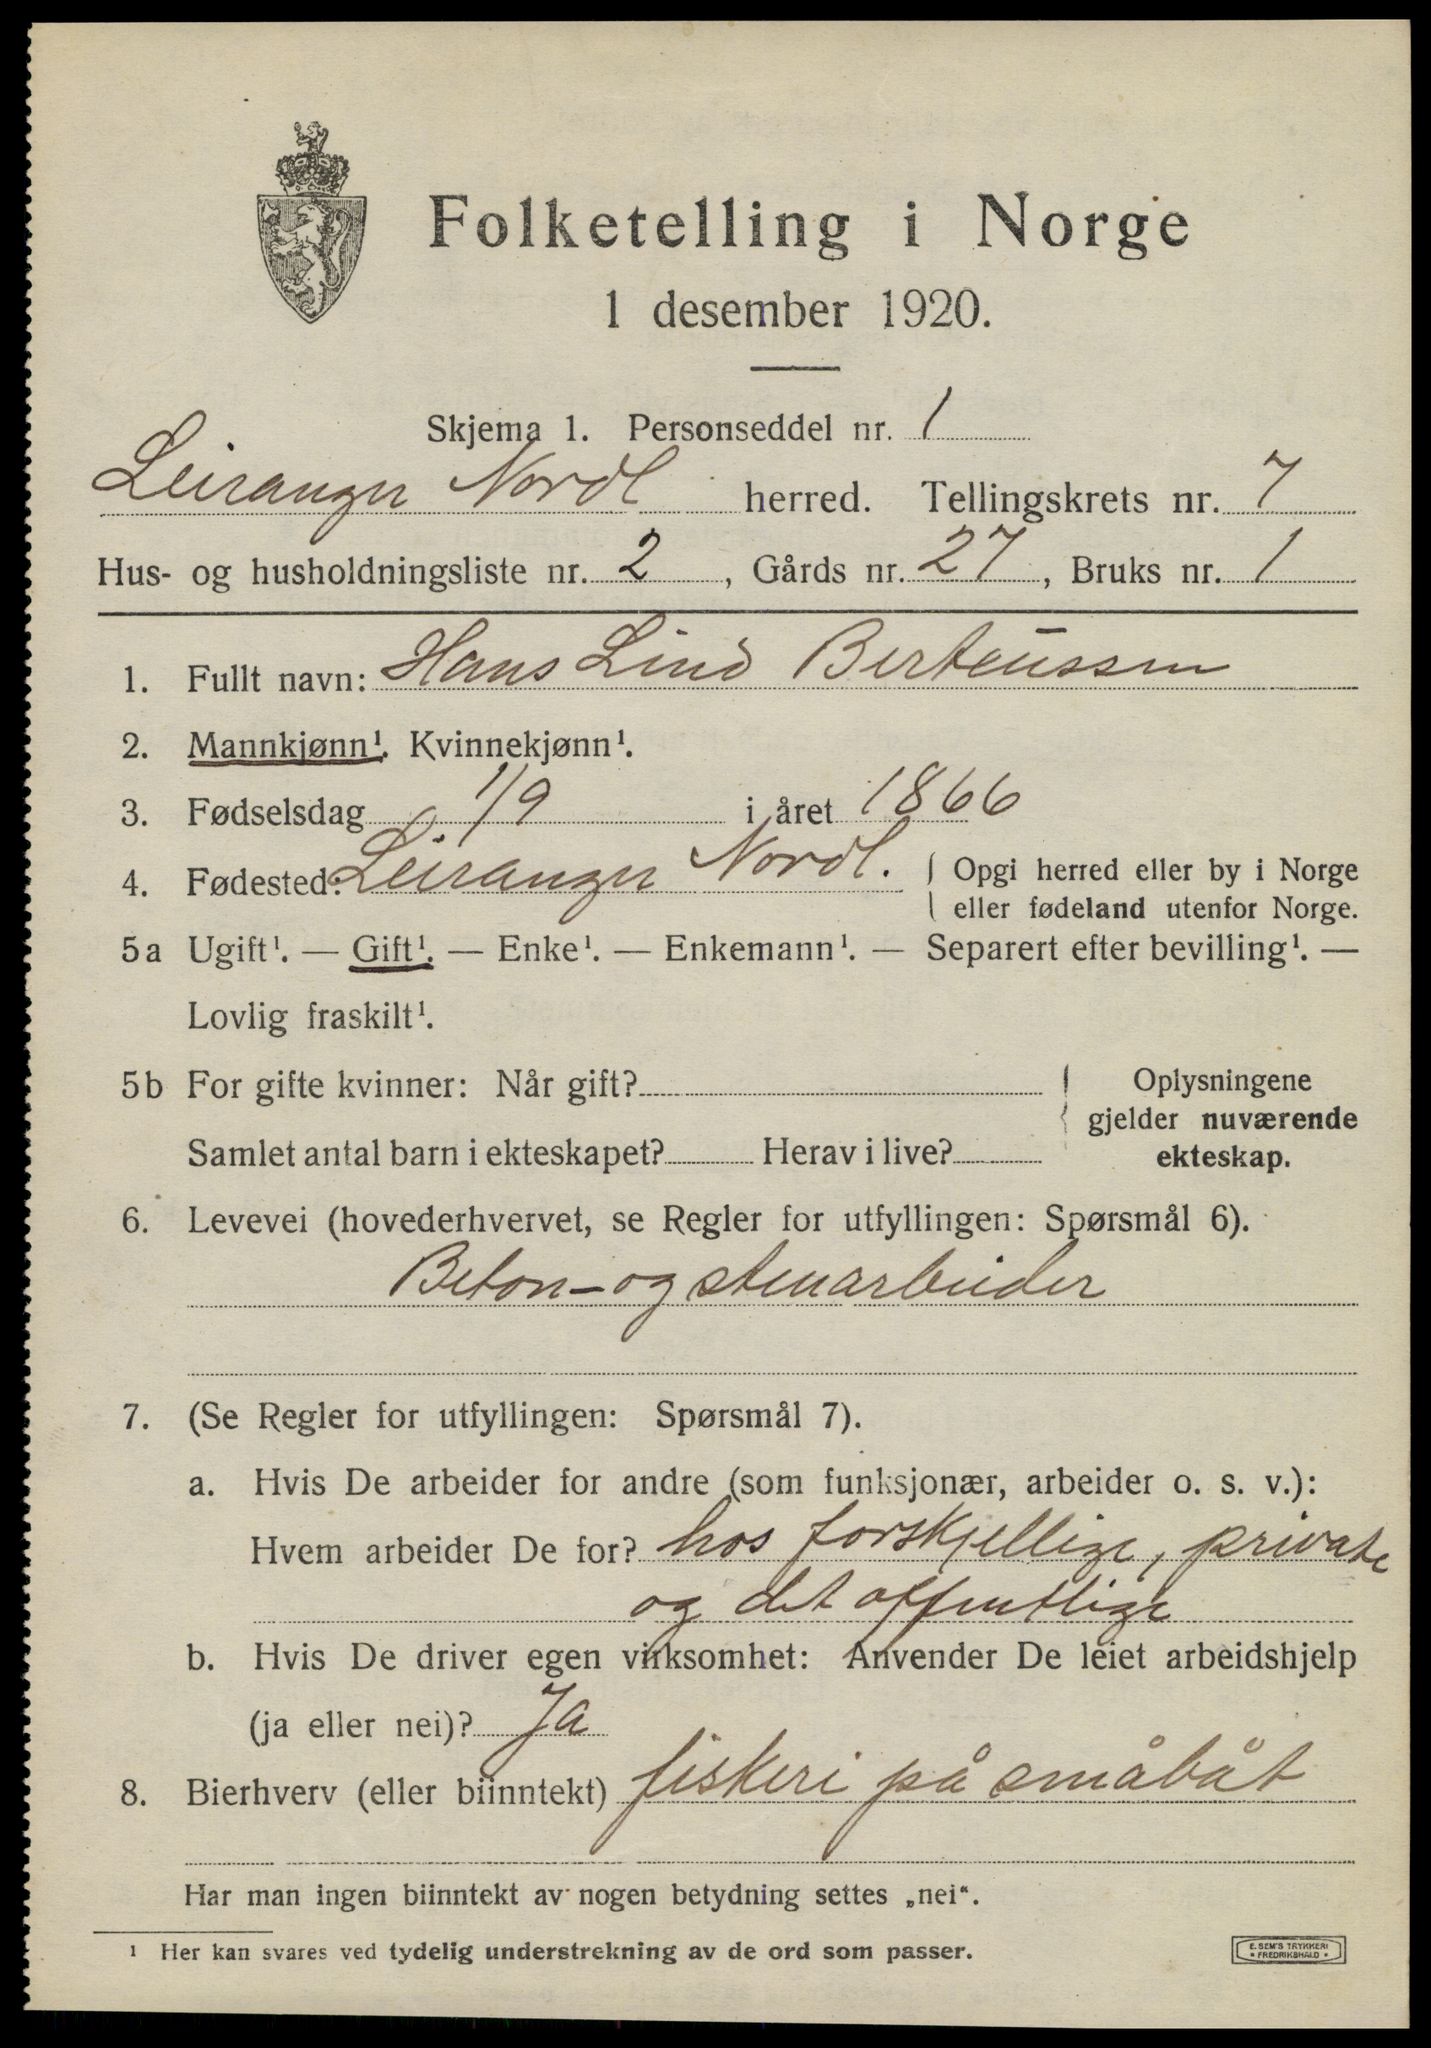 Folketelling i Norge
1 desember 1920.
Skjema 1. Personseddel nr. 1
Leiranger Nordl herred. Tellingskrets nr. 7
Hus- og husholdningsliste nr. 2, Gårds nr. 27, Bruks nr. 1
1. Fullt navn: Hans Lind Berteussen
2. Mannkjønn¹. Kvinnekjønn¹.
3. Fødselsdag 1/9 i året 1866
4. Fødested: Leiranger Nordl. { Opgi herred eller by i Norge
eller fødeland utenfor Norge.
5a Ugift¹. — Gift¹. — Enke¹. — Enkemann¹. — Separert efter bevilling¹. —
Lovlig fraskilt¹.
5b For gifte kvinner: Når gift? { Oplysningene
gjelder nuværende
Samlet antal barn i ekteskapet? Herav i live? ekteskap.
6. Levevei (hovederhvervet, se Regler for utfyllingen: Spørsmål 6).
Beton- og stenarbeider
7. (Se Regler for utfyllingen: Spørsmål 7).
a. Hvis De arbeider for andre (som funksjonær, arbeider o. s. v.):
Hvem arbeider De for? hos forskjellige, private
og det offentlige
b. Hvis De driver egen virksomhet: Anvender De leiet arbeidshjelp
(ja eller nei)? Ja
8. Bierhverv (eller biinntekt) fiskeri på småbåt
Har man ingen biinntekt av nogen betydning settes „nei“.
¹ Her kan svares ved tydelig understrekning av de ord som passer.
E. SEM'S TRYKKERI
FREDRIKSHALD